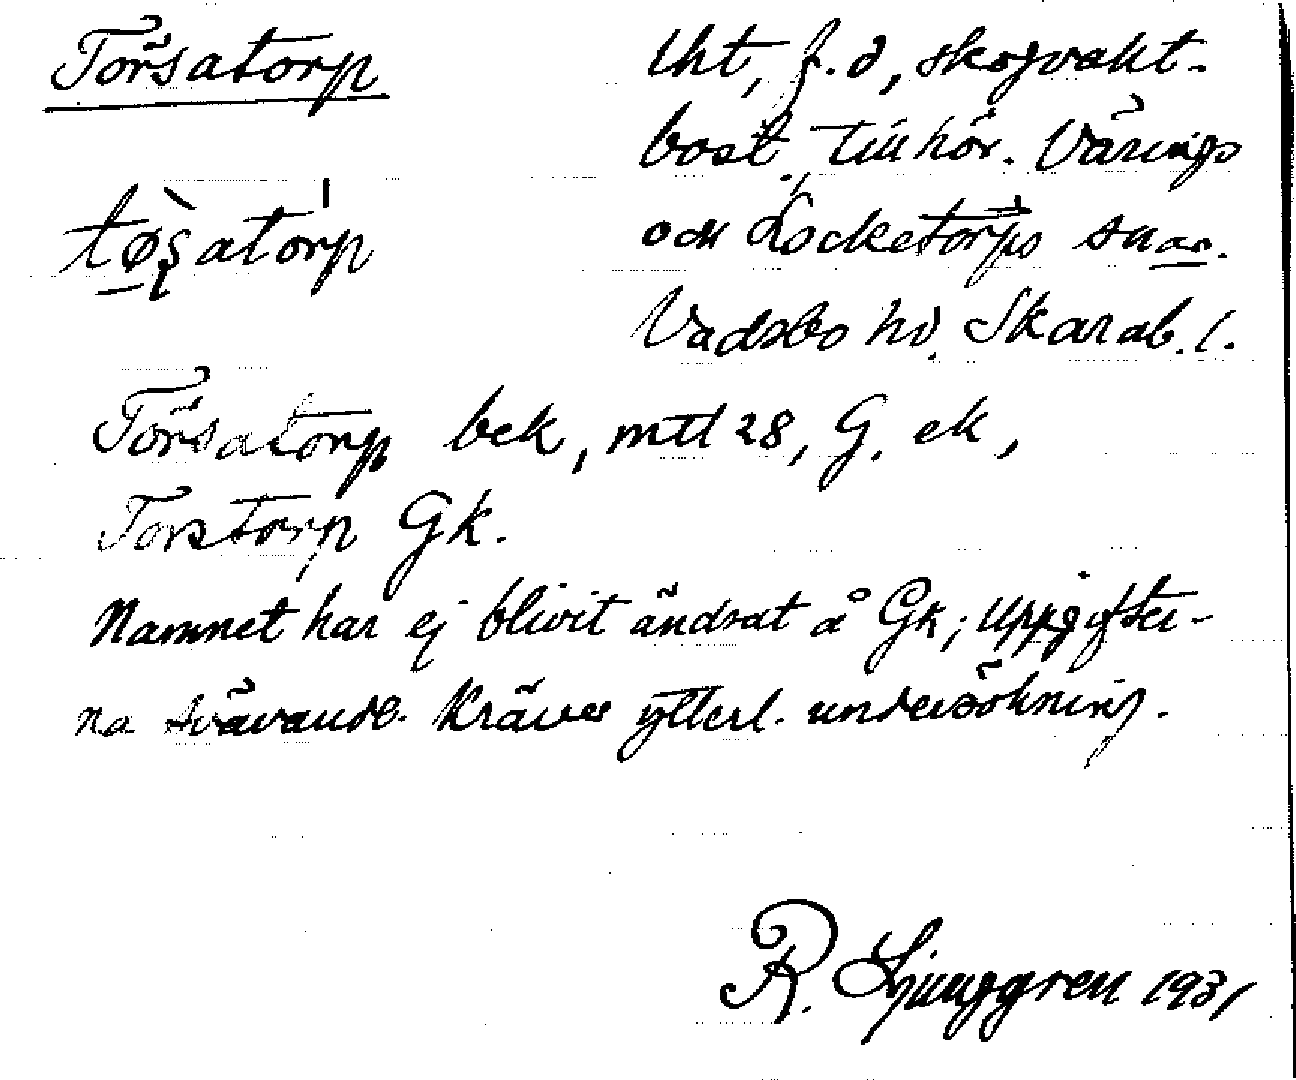 Törsatorp
lht, f.d, skogvakt-
bost, tillhör. Värings
tø̀ʂató̀rp
och Locketorps snar.
Vadsbo hd. Skarab. l.
Törsatorp bek, mtl 28, G. ek,
Torstorp Gk.
Namnet har ej blivit ändrat å Gk; uppgifter-
na svävande. Kräver ytterl. undersökning.
R. Ljunggren 1931